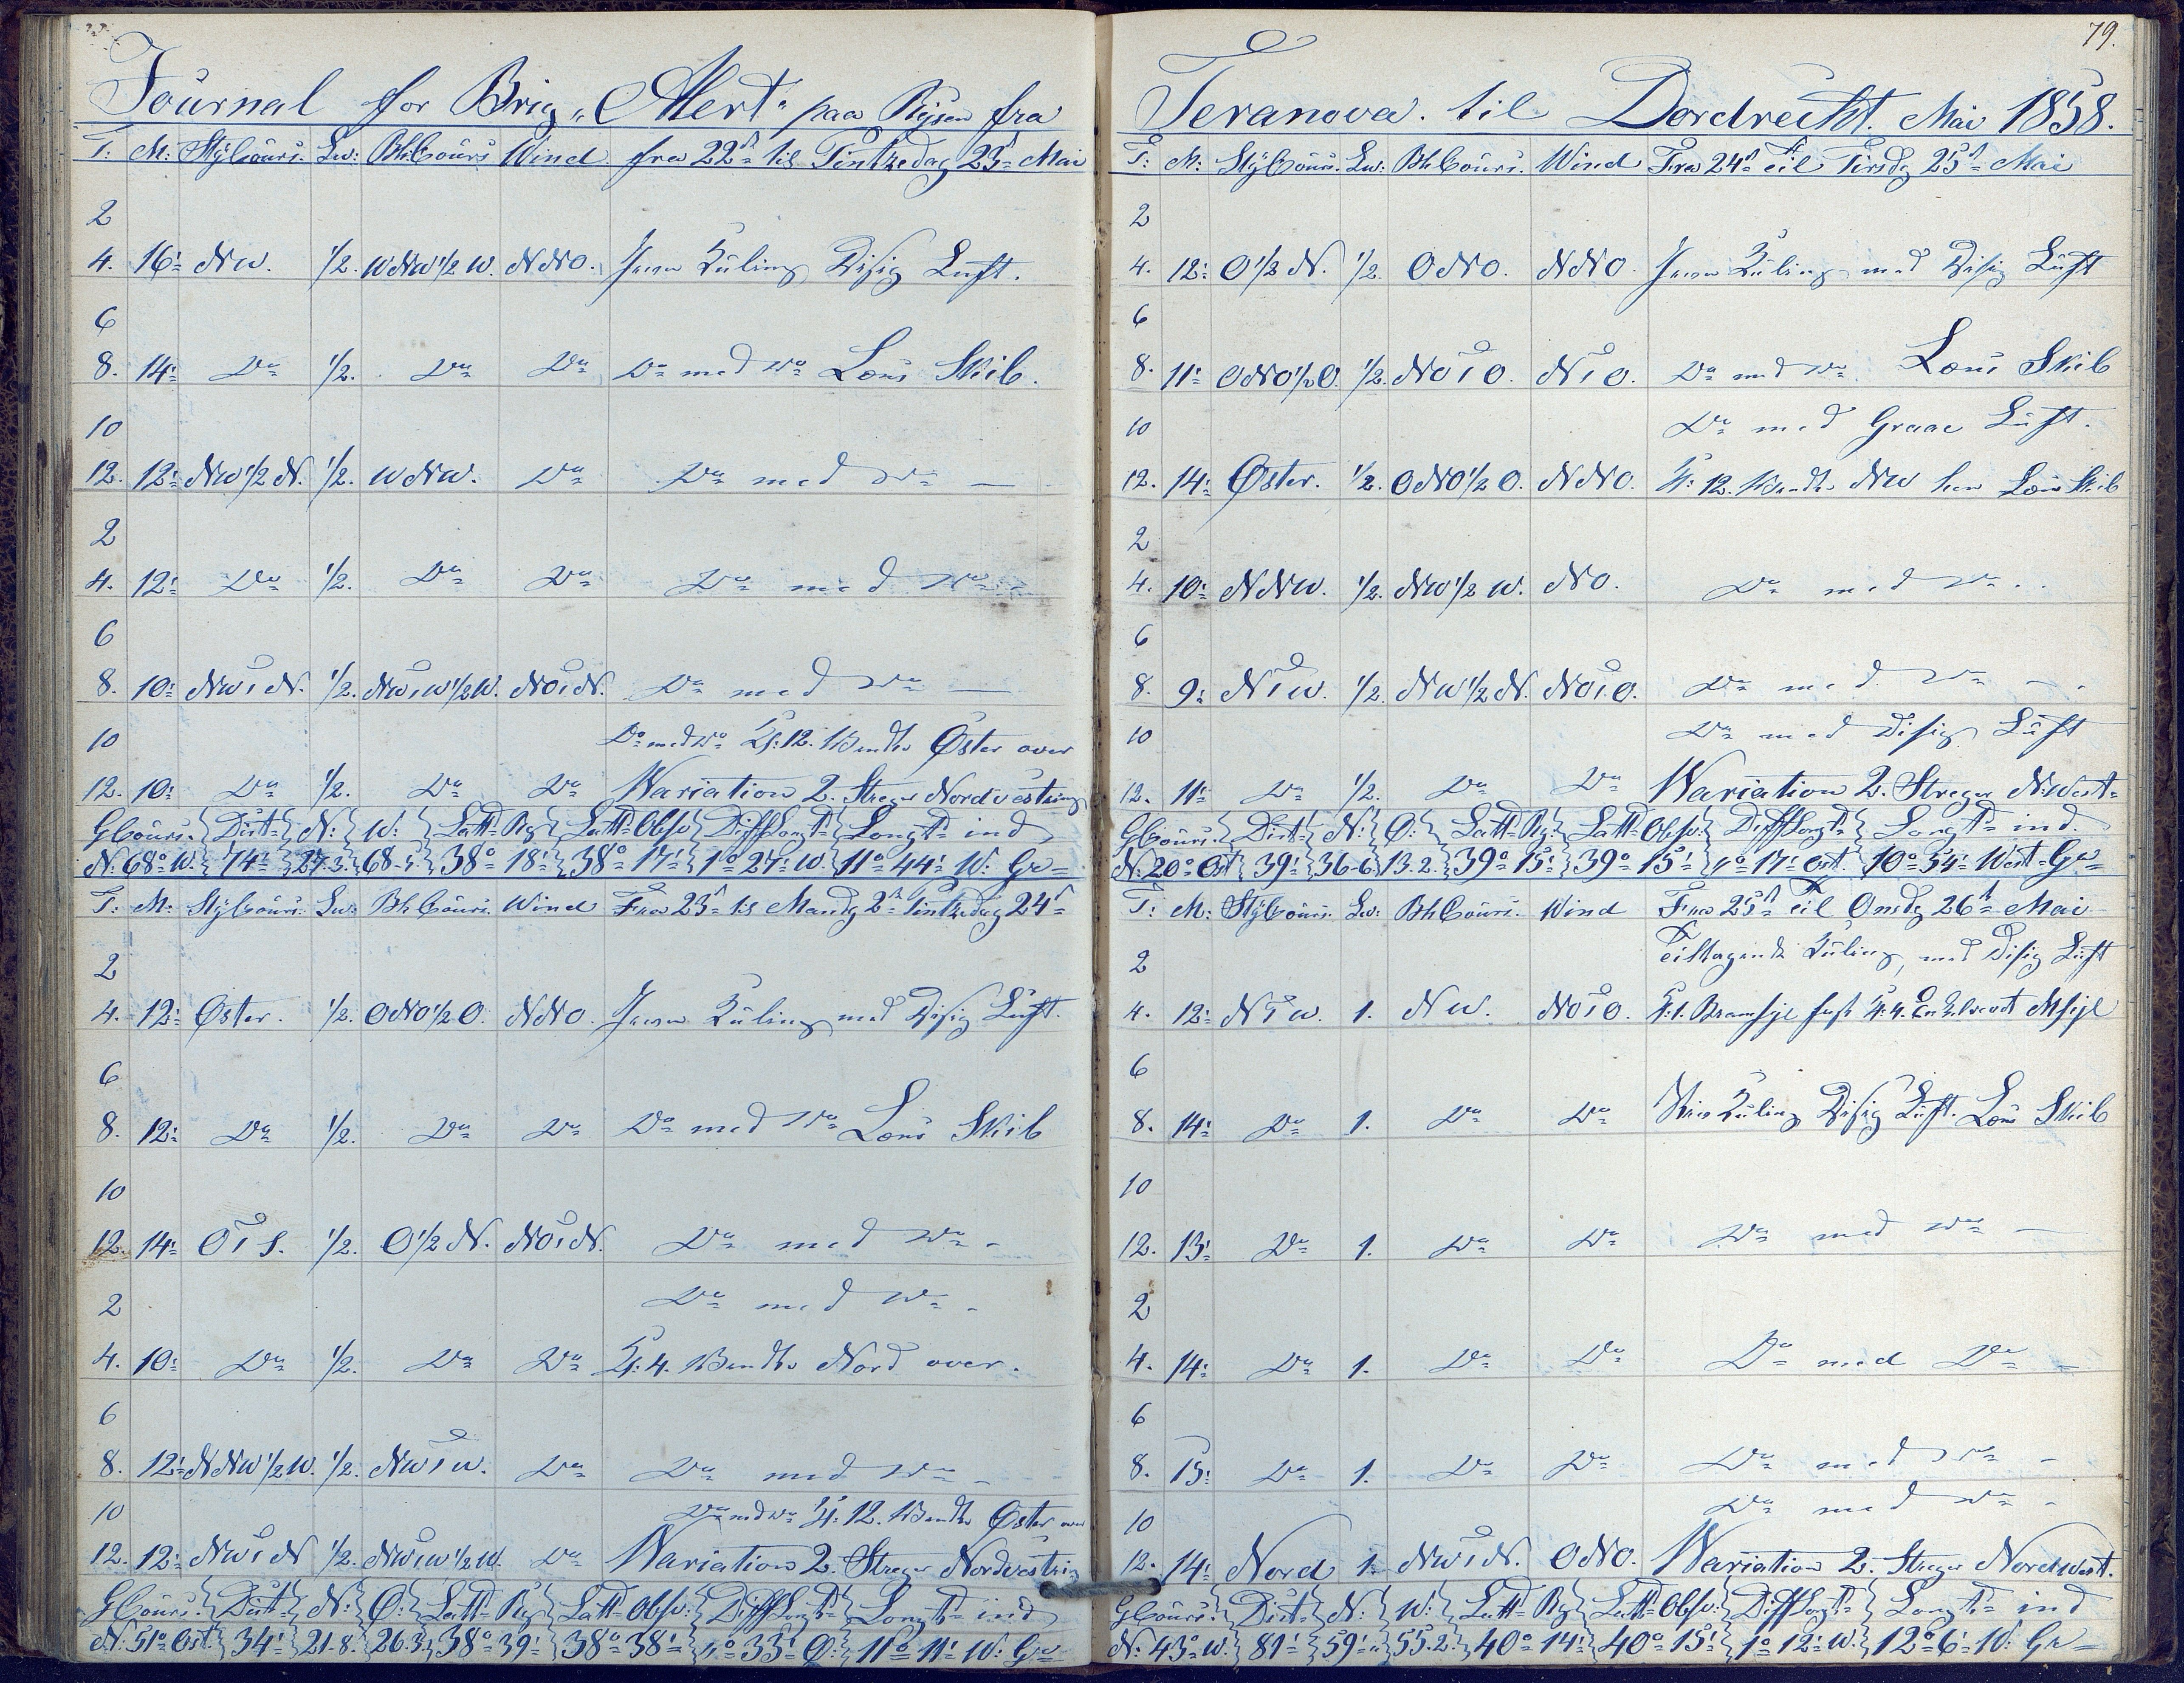 Journal for Brig „Alert“ paa Rejsen fra
T: M: StyCours. Lw: BhCours Wind fra 22d til Pintzedag 23d Mai
2
4. 16: NW. 1/2. WNW 1/2 W. NNO. Jevn Kuling Disig Luft.
6
8. 14: Do 1/2. Do Do Do med Do Lœns Skib.
10
12. 12: NW 1/2 N. 1/2. WNW. Do Do med Do
2
4. 12: Do 1/2. Do Do Do med Do
6
8. 10: NWtN. 1/2. NWtW 1/2 W. NOtN. Do med Do
10 Do med Do Kl: 12. Vendte Øster over
12. 10: Do 1/2. Do Do Variation 2. Streger Nordvestring
GCours. Dist: N: W: Latt: Rg Latt: Obsv: DiffLongt: Longt: ind
N: 68° W. 74' 27.3. 68-5. 38° 18' 38° 17' 1° 27' W. 11° 44' W: Gr
T: M: StyCours Lw: BhCours. Wind Fra 23d til Mandg 2d Pintzedag 24d
2
4. 12: Øster. 1/2. ONO 1/2 O. NNO. Jevn Kuling med Disig Luft.
6
8. 12: Do 1/2. Do Do Do med Do Lœns Skib
10
12. 14: OtS. 1/2. O 1/2 N. NOtN. Do med Do
2 Do med Do
4. 10: Do 1/2. Do Do Kl: 4. Vendte Nord over.
6
8. 12: NNW 1/2 W. 1/2. NWtW. Do Do med Do
10 Do med Do Kl: 12. Vendte Øster over
12. 12: NWtN 1/2. NWtW 1/2 W. Do Variation 2. Streger Nordvestring
GCours. Dist: N: Ø: Latt: Rg Latt: Obsv: DiffLongt: Longt: ind
N: 51° Ost. 34' 21.8. 26.3. 38° 39' 38° 38' 0° 33' Ø: 11° 11' W: Gr
79.
Teranova. til Dordrecht. Mai 1858.
T: M: StyCours. Lw: BhCours. Wind Fra 24d Til Tirsdg 25d Mai
2
4. 12: O 1/2 N. 1/2. ONO. NNO. Jevn Kuling med Disig Luft
6
8. 11: ONO 1/2 O. 1/2. NOtO. NtO. Do med Do Lœns Skib
10 Do med Graae Luft.
12. 14: Øster. 1/2. ONO 1/2 O. NNO. Kl: 12. Vendte NW hen Lœns Skib
2
4. 10: NNW. 1/2. NW 1/2 W. NO. Do med Do
6
8. 9: NtW. 1/2. NW 1/2 N. NOtO. Do med Do
10 Do med Disig Luft
12. 11: Do 1/2. Do Do Variation 2. Streger N:West
GCours: Dist: N: Ø: Latt: Rg: Latt: Obsv: DiffLongt: Longt: ind.
N: 20° Ost 39' 36-6. 13.2. 39° 15' 39° 15' 0° 17' Ost. 10° 54' West. Gr
T: M: StyCours. Lw: BhCours. Wind Fra 25d Til Onsdg 26d Mai
2 Tiltagende Kuling, med Disig Luft
4. 12: NtW. 1. NW. NOtO. Kl: 1. Bramsejl fast Kl: 4. Msejl
6
8. 14: Do 1. Do Do Kuling Disig Luft. Lœns Skib
10
12. 13: Do 1. Do Do Do med Do
2
4. 14: Do 1. Do Do Do med Do
6
8. 15: Do 1. Do Do Do med Do
10 Do med Do
12. 14: Nord 1. NWtN. ONO. Variation 2. Streger Nordwest.
GCours: Dist: N: W: Latt: Rg Latt: Obsv: DiffLongt: Longt: ind
N: 43° W. 81' 59' 55.2. 40° 14' 40° 15' 1° 12' W. 12° 6' W: Gr